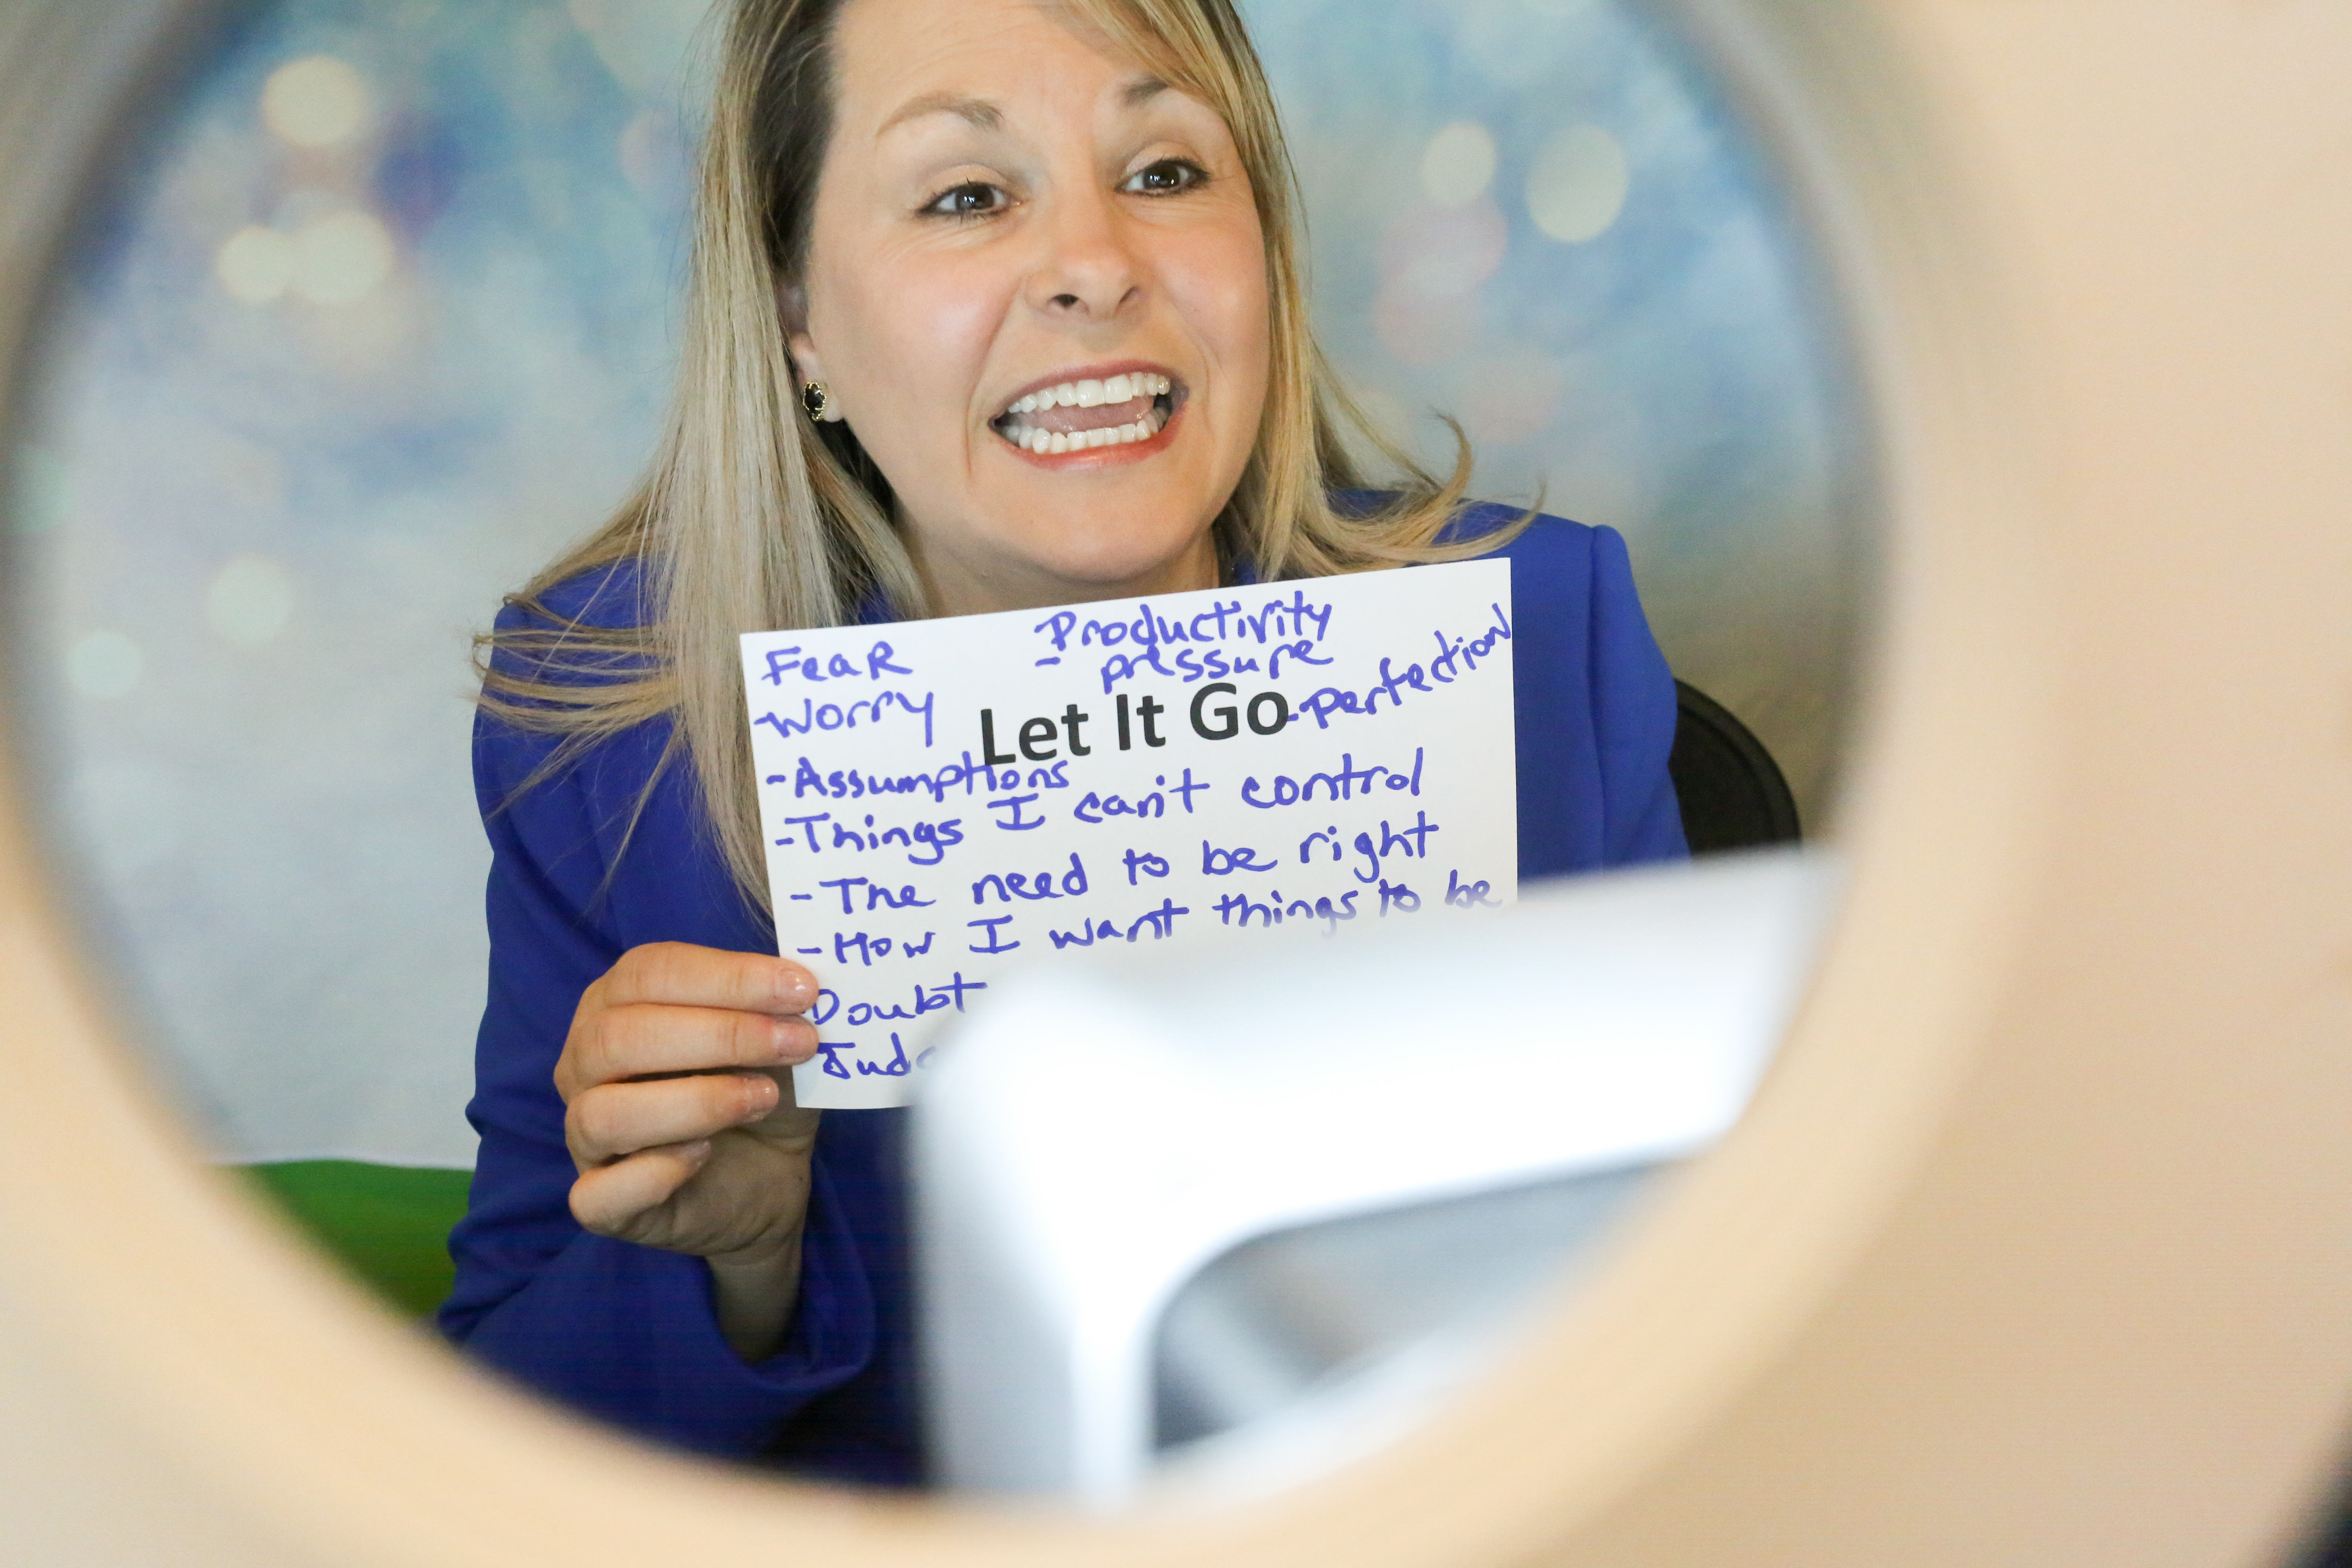 Fear
-Worry
-Productivity
- pressure
Let It Go
-perfection
-Assumptions
-Things I can't control
-The need to be right
-How I want things to be
Doubt